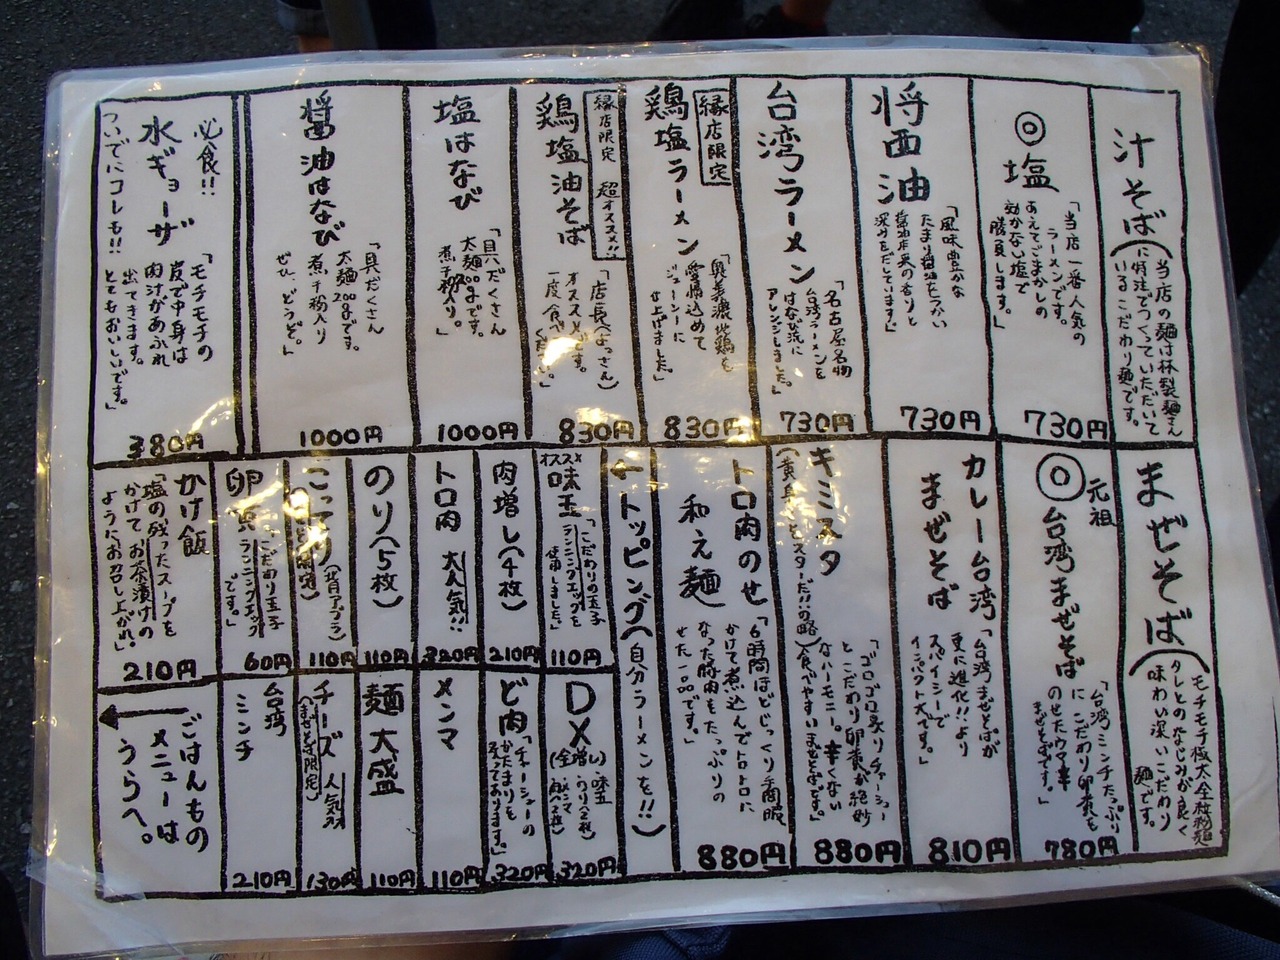 汁そば
(当店の麺は林製麺さん
に特注でつくっていただいて
いるこだわり麺です。
◎塩
「当店一番人気の
ラーメンです。
あえてごまかしの
効かない塩で
勝負します。
730円
将西油
「風味豊かな
たまり醤油をつかい
醤油本来の香りと
深みをだしています」
730円
台湾ラーメン
「名古屋名物
台湾ラーメンを
はなび流に
アレンジしました。」
730円
縁店限定
鶏塩ラーメン
「奥美濃地鶏を
愛情込めて
ジューシーに
仕上げました。」
830円
縁店限定 超オススメ!!
鶏塩油そば
「店長(よっさん)
オススメです。
一度食べて
ください。」
830円
塩はなび
「具だくさん
太麺200gです。
煮干粉入り。」
1000円
醤油はなび
「具だくさん
太麺200gです。
煮干粉入り
ぜひ、どうぞ。」
1000円
必食!!
水ギョーザ
ついでにコレも!!
「モチモチの
皮で中身は
肉汁があふれ
出てきます。
とてもおいしいです。」
380円
まぜそば
(モチモチ極太全粒粉麺
タレとのなじみが良く
味わい深いこだわり
麺です。
元祖
◎台湾まぜそば
「台湾ミンチたっぷり
にこだわり卵黄を
のせたウマ辛
まぜそばです。」
780円
カレー台湾
まぜそば
「台湾まぜそばが
更に進化!!より
スパイシーで
インパクト大です。」
810円
キミスタ
(黄身 スターだ!!の略)
「ゴロゴロ炙りチャーシュー
とこだわり卵黄が絶妙
なハーモニー。辛くない
食べやすいまぜそばです。」
880円
トロ肉のせ
和え麺
「6時間ほどじっくり手間暇
かけて煮込んでトロトロに
なった豚肉をたっぷりの
せた一品です。」
880円
←トッピング(自分ラーメンを!!)
オススメ
味玉
「こだわりの玉子
ランニングエッグを
使用しました。」
110円
肉増し(4枚)
210円
トロ肉 大人気!!
320円
のり(5枚)
110円
こってり(背アブラ)
110円
卵
こだわり玉子
ランニングエッグ
です。」
60円
かけ飯
「塩の残ったスープを
かけてお茶漬けの
ようにお召し上がれ♪」
210円
DX
(全増し)味玉
のり2枚
メンマ
肉2枚
320円
ど肉
「チャーシューの
かたまりを
そえております。」
320円
メンマ
110円
麺大盛
110円
チーズ 人気
(まぜそば限定)
130円
台湾
ミンチ
210円
ごはんもの
メニューは
うらへ。
←